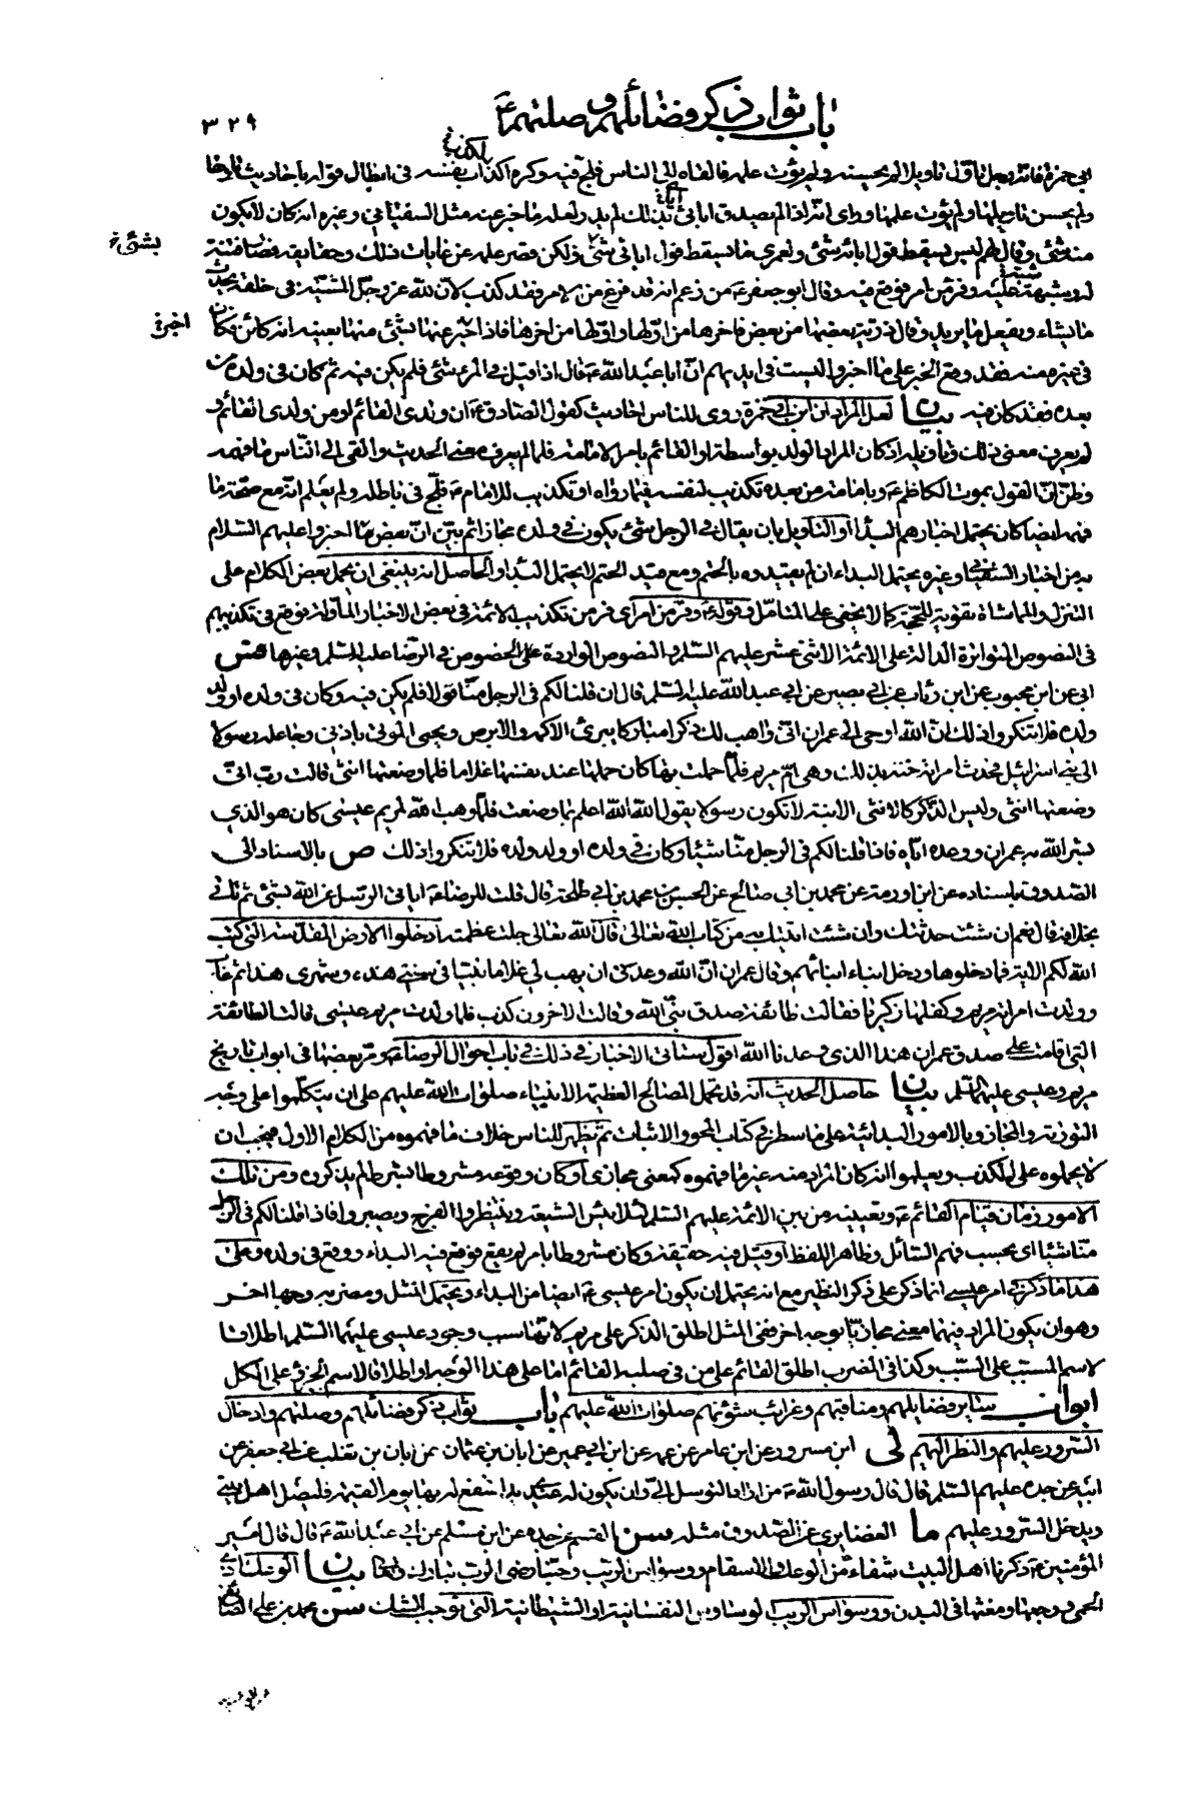 باب ثواب ذكر فضائلهم و صلتهم ع
٣٢٩
ابى حمزة فانه رجل تاول تاويلا لم يحسنه ولم يؤت علمه فالقاه الى الناس فلج فيه وكره اكذاب نفسه فى ابطال قوله باحاديث تاولها
ولم يحسن تاويلها ولم يؤت علمها وراى انه اذا لم يصدق ابائى بذلك لم يدر لعله ما خبر عنه مثل السفيانى وغيره انه كان لا يكون
منه شئ وقال لهم ليس يسقط قول ابائه شئ ولعمرى ما يسقط قول ابائى شئ ولكن قصر علمه عن غايات ذلك وحقايقه فصار فتنة
بشئ خ
له وشبهة عليه وفر من امر فوقع فيه وقال ابو جعفر ع من زعم انه قد فرغ من الامر فقد كذب لان لله عز وجل المشية فى خلقه يحدث
ما يشاء ويفعل ما يريد وقال ذرية بعضها من بعض فاخرها من اولها واولها من اخرها فاذا خبر عنها بشئ منها بعينه انه كائن فكان
اخبر خ
فى غيره منه فقد وقع الخبر على ما اخبروا اليس فى ايديهم ان ابا عبد الله ع قال اذا قيل فى المرء شئ فلم يكن فيه ثم كان فى ولده من
بعده فقد كان فيه بيان لعل المراد ان ابن ابى حمزة روى للناس احاديث كقول الصادق ع ان ولدى القائم او من ولدى القائم و
لم يعرف معنى ذلك وتاويله اذ كان المراد الولد بواسطة او القائم بامر الامامة فلما لم يعرف معنى الحديث والقى الى الناس ما فهمه
وظن ان القول بموت الكاظم ع وبامامة من بعده تكذيب لنفسه فيما رواه او تكذيب للامام ع فلج فى باطله ولم يعلم انه مع صحة ما
فهمه ايضا كان يحتمل اخبارهم البداء او التاويل بان يقال فى الرجل شئ يكون فى ولده مجازا ثم بين ان بعض ما اخبروا عليهم السلام
به من اخبار السفيانى وغيره يحتمل البداء ان لم يقيدوه بالحتم ومع قيد الحتم لا يحتمل البداء والحاصل انه ينبغى ان يحمل بعض الكلام على
التنزل والمماشاة تقوية للحجة كما لا يخفى على المتامل وقوله ع وفر من امر اى فر من تكذيب الائمة فى بعض الاخبار الماولة فوقع فى تكذيبهم
فى النصوص المتواترة الدالة على الائمة الاثنى عشر عليهم السلم والنصوص الواردة على الخصوص فى الرضا عليه السلم وغيرها فس
ابى عن ابن محبوب عن ابن رئاب عن ابى بصير عن ابى عبد الله عليه السلم قال ان قلنا لكم فى الرجل منا قولا فلم يكن فيه وكان فى ولده او ولد
ولده فلا تنكروا ذلك ان الله اوحى الى عمران انى واهب لك ذكرا مباركا يبرئ الاكمه والابرص ويحيى الموتى باذنى وجاعله رسولا
الى بنى اسرائيل فحدث امراته حنة بذلك وهى ام مريم فلما حملت بها كان حملها عند نفسها غلاما فلما وضعتها انثى قالت رب انى
وضعتها انثى وليس الذكر كالانثى الابنة لا تكون رسولا يقول الله الله اعلم بما وضعت فلما وهب الله لمريم عيسى كان هو الذى
بشر الله به عمران ووعده اياه فاذا قلنا لكم فى الرجل منا شيئا وكان فى ولده او ولد ولده فلا تنكروا ذلك ص بالاسناد الى
الصدوق باسناده عن ابن اورمة عن محمد بن ابى صالح عن الحسن بن محمد بن ابى طلحة قال قلت للرضا ع اياتى الرسل عن الله بشئ ثم تاتى
بخلافه قال نعم ان شئت حدثتك وان شئت اتيتك به من كتاب الله تعالى قال الله تعالى جلت عظمته ادخلوا الارض المقدسة التى كتب
الله لكم الاية فما دخلوها ودخل ابناء ابنائهم وقال عمران ان الله وعدنى ان يهب لى غلاما نبيا فى سنتى هذه وشهرى هذا ثم غاب
وولدت امراته مريم وكفلها زكريا فقالت طائفة صدق نبى الله وقالت الاخرون كذب فلما ولدت مريم عيسى قالت الطائفة
التى اقامت على صدق عمران هذا الذى وعدنا الله اقول ستاتى الاخبار فى ذلك فى باب احوال الرضا ع ومر بعضها فى ابواب تاريخ
مريم وعيسى عليهما السلم بيان حاصل الحديث انه قد تحمل المصالح العظيمة الانبياء صلوات الله عليهم على ان يتكلموا على وجه
التورية والمجاز وبالامور البدائية على ما سطر فى كتاب المحو والاثبات ثم تظهر للناس خلاف ما فهموه من الكلام الاول فيجب ان
لا يحملوه على الكذب ويعلموا انه كان المراد منه غير ما فهموه كمعنى مجازى او كان وقوعه مشروطا بشرط لم يذكروه ومن تلك
الامور زمان قيام القائم ع وتعيينه من بين الائمة عليهم السلم لئلا يئس الشيعة وينتظروا الفرج ويصبروا فاذا قلنا لكم فى الرجل
منا شيئا اى بحسب فهم السائل وظاهر اللفظ او قيل فيه حقيقة وكان مشروطا بامر لم يقع فوقع فيه البداء ووقع فى ولده وعلى
هذا ما ذكر فى امر عيسى انما ذكر على ذكر النظير مع انه يحتمل ان يكون امر عيسى ع ايضا من البداء ويحتمل المثل ومضربه وجها اخر
وهو ان يكون المراد فيهما معنى مجازيا بوجه اخر ففى المثل اطلق الذكر على مريم لانها سبب وجود عيسى عليهما السلم اطلاقا
لاسم المسبب على السبب وكذا فى المضرب اطلق القائم على من فى صلبه القائم اما على هذا الوجه او اطلاقا لاسم الجزء على الكل
ابواب سائر فضايلهم ومناقبهم وغرائب شؤنهم صلوات الله عليهم باب ثواب ذكر فضائلهم وصلتهم وادخال
السرور عليهم والنظر اليهم لى ابن مسرور عن ابن عامر عن عمه عن ابن ابى عمير عن ابان بن عثمان عن ابان بن تغلب عن ابى جعفر عن
ابيه عن جده عليهم السلم قال قال رسول الله ص من اراد التوسل الى وان يكون له عندى يد اشفع له بها يوم القيمة فليصل اهل بيتى
ويدخل السرور عليهم ما الغضايرى عن الصدوق مثله سن القسم عن جده عن ابن مسلم عن ابى عبد الله ع قال قال امير
المؤمنين ع ذكرنا اهل البيت شفاء من الوعك والاسقام ووسواس الريب وحبنا رضى الرب تبارك وتعالى بيان الوعك اذى
الحمى ووجعها ومغثها فى البدن ووسواس الريب الوساوس النفسانية او الشيطانية التى توجب الشك سن محمد بن على الصايغ